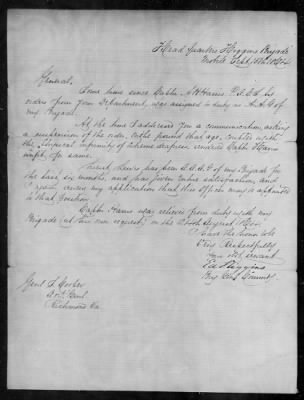 Head Quarters Higgins Brigade
Mobile Sept 10th 1864
General,
Some time since Captn N. Harris P.A.C.S. by
orders from your Department, was assigned to duty as A.A.G of
my Brigade.
At the time I addressed you a communication, asking
a suspension of the order, on the ground that age, together with
the physical infirmity of extreme deafness, rendered Captn Harris
unfit for same.
Lieut has been A.A.A.G of my Brigade for
the last six months, and has given entire satisfaction, and
I again renew my application that this officer may be appointed
to that position.
Captn Harris was relieved from duty with my
Brigade (at his own request) on the August
I have the honor to be
Very Respectfully
Your obt servant
Ed Higgins
Brig Genl Comdg
Genl S. Cooper
A & I Genl
Richmond Va